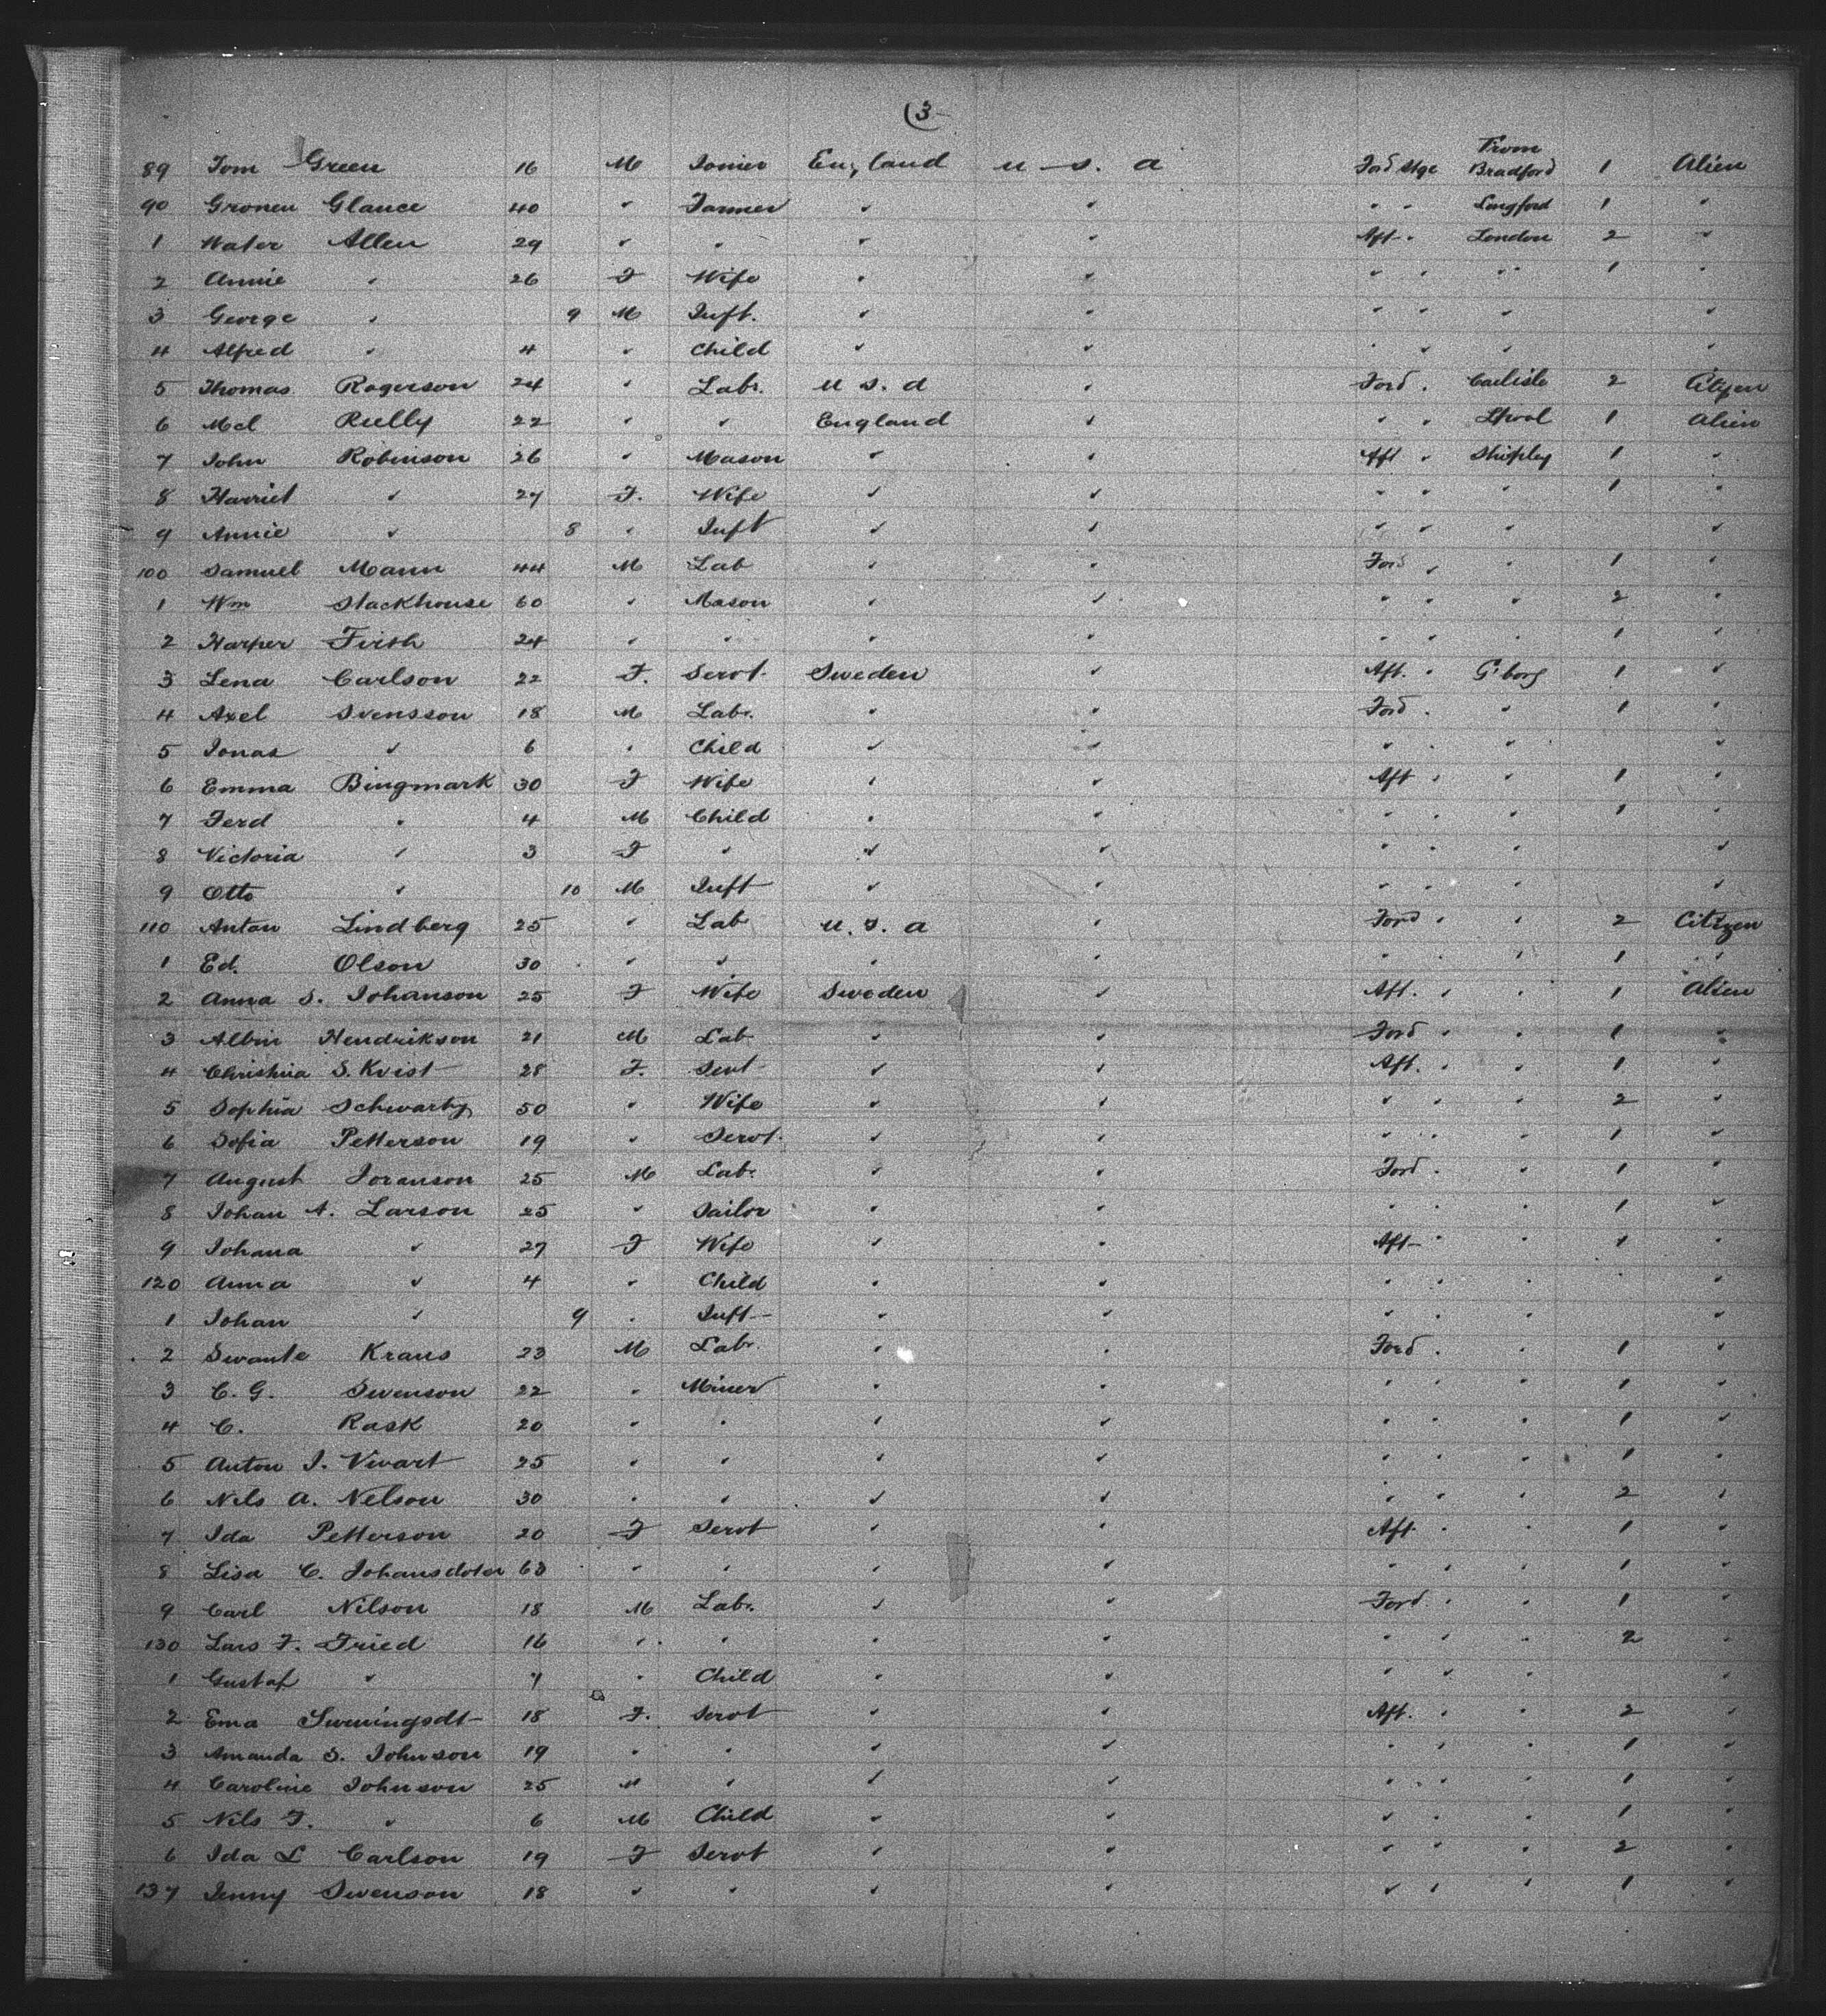 (3-
From
89 Tom Green 16 M Joiner England U. S. A Ford Stge Bradford 1 Alien
90 Glance 40 " Farmer " " " " Longford 1 "
1 Water Allen 29 " " " " Aft " London 2 "
2 Annie " 26 F Wife " " " " " 1 "
3 George " 9 M Inft. " " " " " "
4 Alfred " 4 " Child " " " " " "
5 Thomas Rogerson 24 " Labr. U. S. A " Ford " Carlisle 2 Citizen
6 Mcl Reilly 22 " " England " " " Lpool 1 Alien
7 John Robinson 26 " Mason " " Aft " Shipley 1 "
8 Harriet " 27 F. Wife " " " " " 1 "
9 Annie " 8 " Inft " " " " " "
100 Samuel Mann 44 M Lab " " Ford " " 1 "
1 Wm Stackhouse 60 " Mason " " " " " 2 "
2 Harper Firth 24 " " " " " " " 1 "
3 Lena Carlson 22 F. Servt. Sweden " Aft. " G'borg 1 "
4 Axel Svensson 18 M Labr. " " Ford " " 1 "
5 Jonas " 6 " Child " " " " " "
6 Emma Bingmark 30 F Wife " " Aft " " 1 "
7 Ferd " 4 M Child " " " " " 1 "
8 Victoria " 3 F " " " " " " "
9 Otto " 10 M Inft " " " " " "
110 Anton Lindberg 25 " Lab U. S. A " Ford " " 2 Citizen
1 Ed. Olson 30 " " " " " " " 1 "
2 Anna S. Johanson 25 F Wife Sweden " Aft. " " 1 Alien
3 Albin Hendrikson 21 M Lab " " Ford " " 1 "
4 Christina S. Kvist 28 F. Sevt " " Aft. " " 1 "
5 Sophia Schwartz 50 " Wife " " " " " 2 "
6 Sofia Petterson 19 " Servt. " " " " " 1 "
7 August Joranson 25 M Lab. " " Ford " " 1 "
8 Johan A. Larson 25 " Sailor " " " " " 1 "
9 Johana " 27 F Wife " " Aft " " 1 "
120 Anna " 4 " Child " " " " " "
1 Johan " 9 " Inft " " " " " "
2 Swante Kraus 23 M Labr. " " Ford " " 1 "
3 C. G. Swenson 22 " Miner " " " " " 1 "
4 C. Rask 20 " " " " " " " 1 "
5 Anton J. Vivart 25 " " " " " " " 1 "
6 Nils A. Nelson 30 " " " " " " " 2 "
7 Ida Petterson 20 F Servt " " Aft " " 1 "
8 Lisa C. Johansdoter 63 " " " " " " " 1 "
9 Carl Nilson 18 M Labr. " " Ford " " 1 "
130 Lars F. Fried 16 " " " " " " " 2 "
1 Gustaf " 7 " Child " " " " " "
2 Ema Sweningsdt 18 F. Servt " " Aft. " " 2 "
3 Amanda S. Johnson 19 " " " " " " " 1 "
4 Caroline Johnson 25 " " " " " " " 1 "
5 Nils F. " 6 M Child " " " " " 1 "
6 Ida L Carlson 19 F Servt " " " " " 2 "
137 Jenny Swenson 18 " " " " " " " 1 "